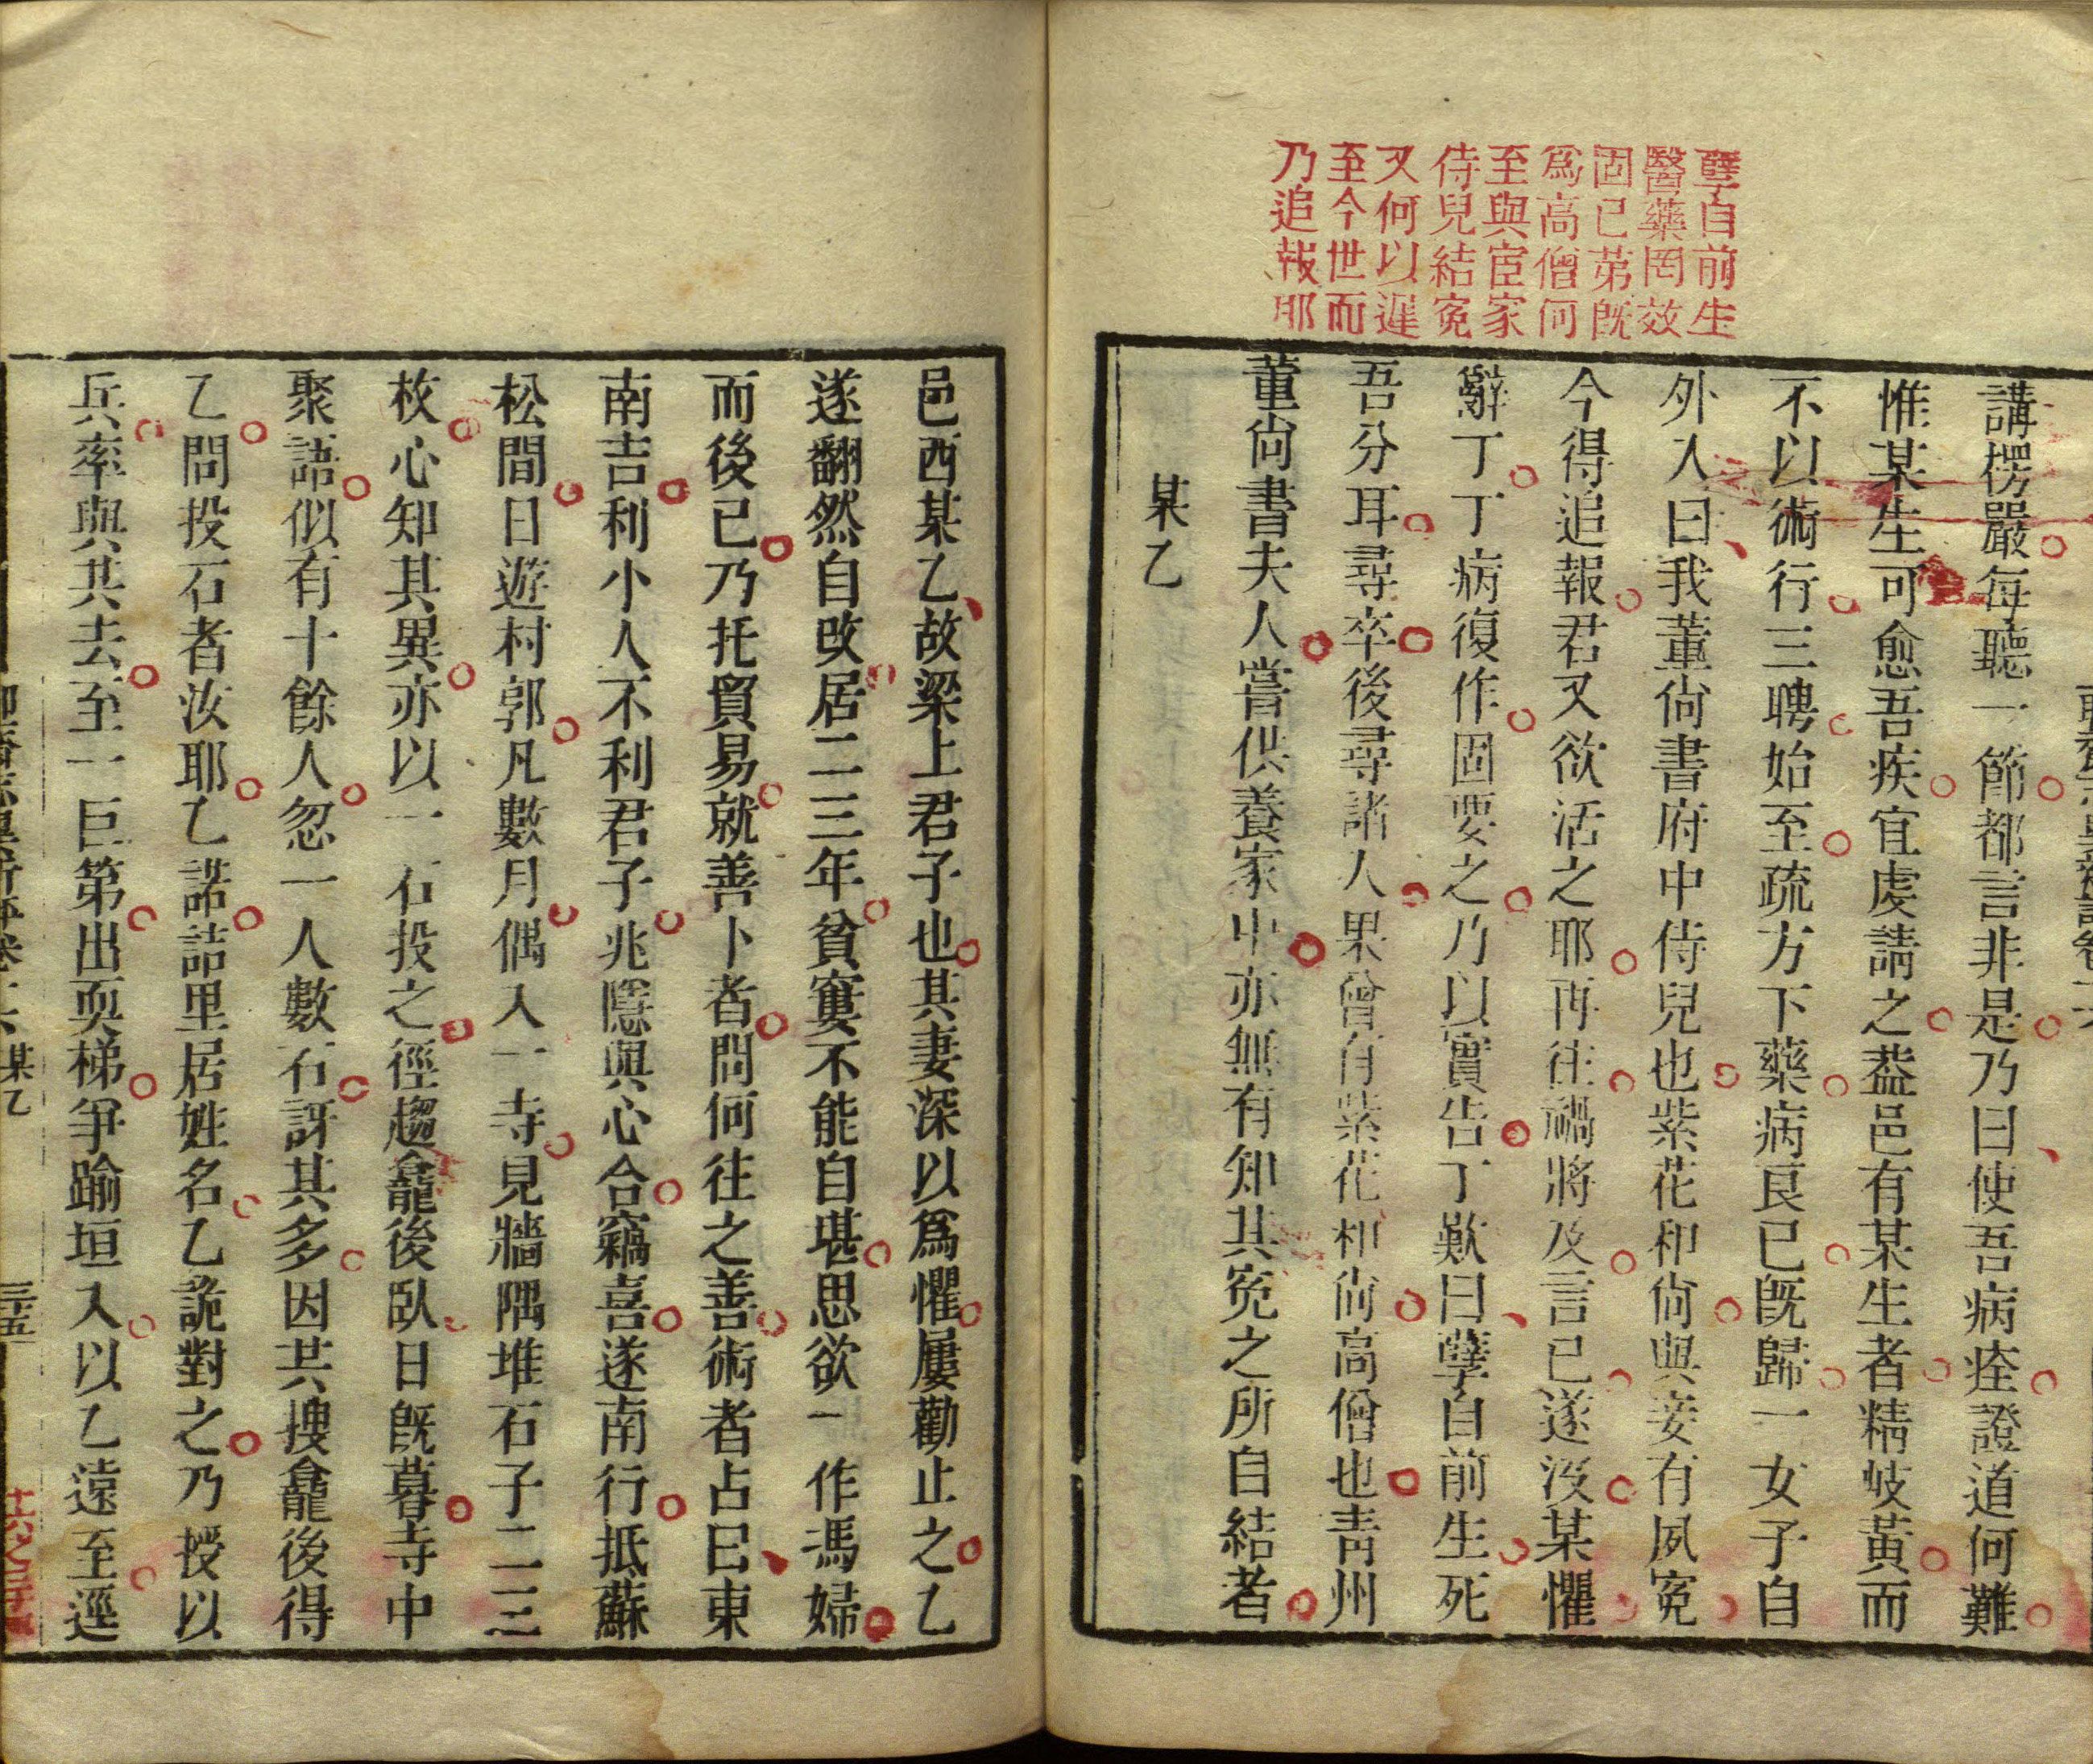 孽自前生
醫藥罔效
固已苐既
爲高僧何
至與宦家
侍兒結寃
又何以遲
至今世而
乃追報耶
講楞嚴每聽一節都言非是乃曰使吾病痊證道何難
惟某生可愈吾疾宜虔請之葢邑有某生者精岐黃而
不以術行三聘始至疏方下藥病良已既歸一女子自
外入曰我董尙書府中侍兒也紫花和尙與妾有夙寃
今得追報君又欲活之耶再往禍將及言已遂沒某懼
辭丁丁病復作固要之乃以實告丁歎曰孽自前生死
吾分耳尋卒後尋諸人果曾有紫花和尙高僧也靑州
董尙書夫人嘗供養家中亦無有知其寃之所自結者
某乙
邑西某乙故梁上君子也其妻深以爲懼屢勸止之乙
遂翻然自改居二三年貧窶不能自堪思欲一作馮婦
而後已乃托貿易就善卜者問何往之善術者占曰東
南吉利小人不利君子兆隱與心合竊喜遂南行抵蘇
松間日遊村郭凡數月偶入一寺見牆隅堆石子二三
枚心知其異亦以一石投之徑趨龕後臥日既暮寺中
聚語似有十餘人忽一人數石訝其多因共搜龕後得
乙問投石者汝耶乙諾詰里居姓名乙詭對之乃授以
兵率與共去至一巨第出耎梯爭踰垣入以乙遠至逕
某乙
三十五